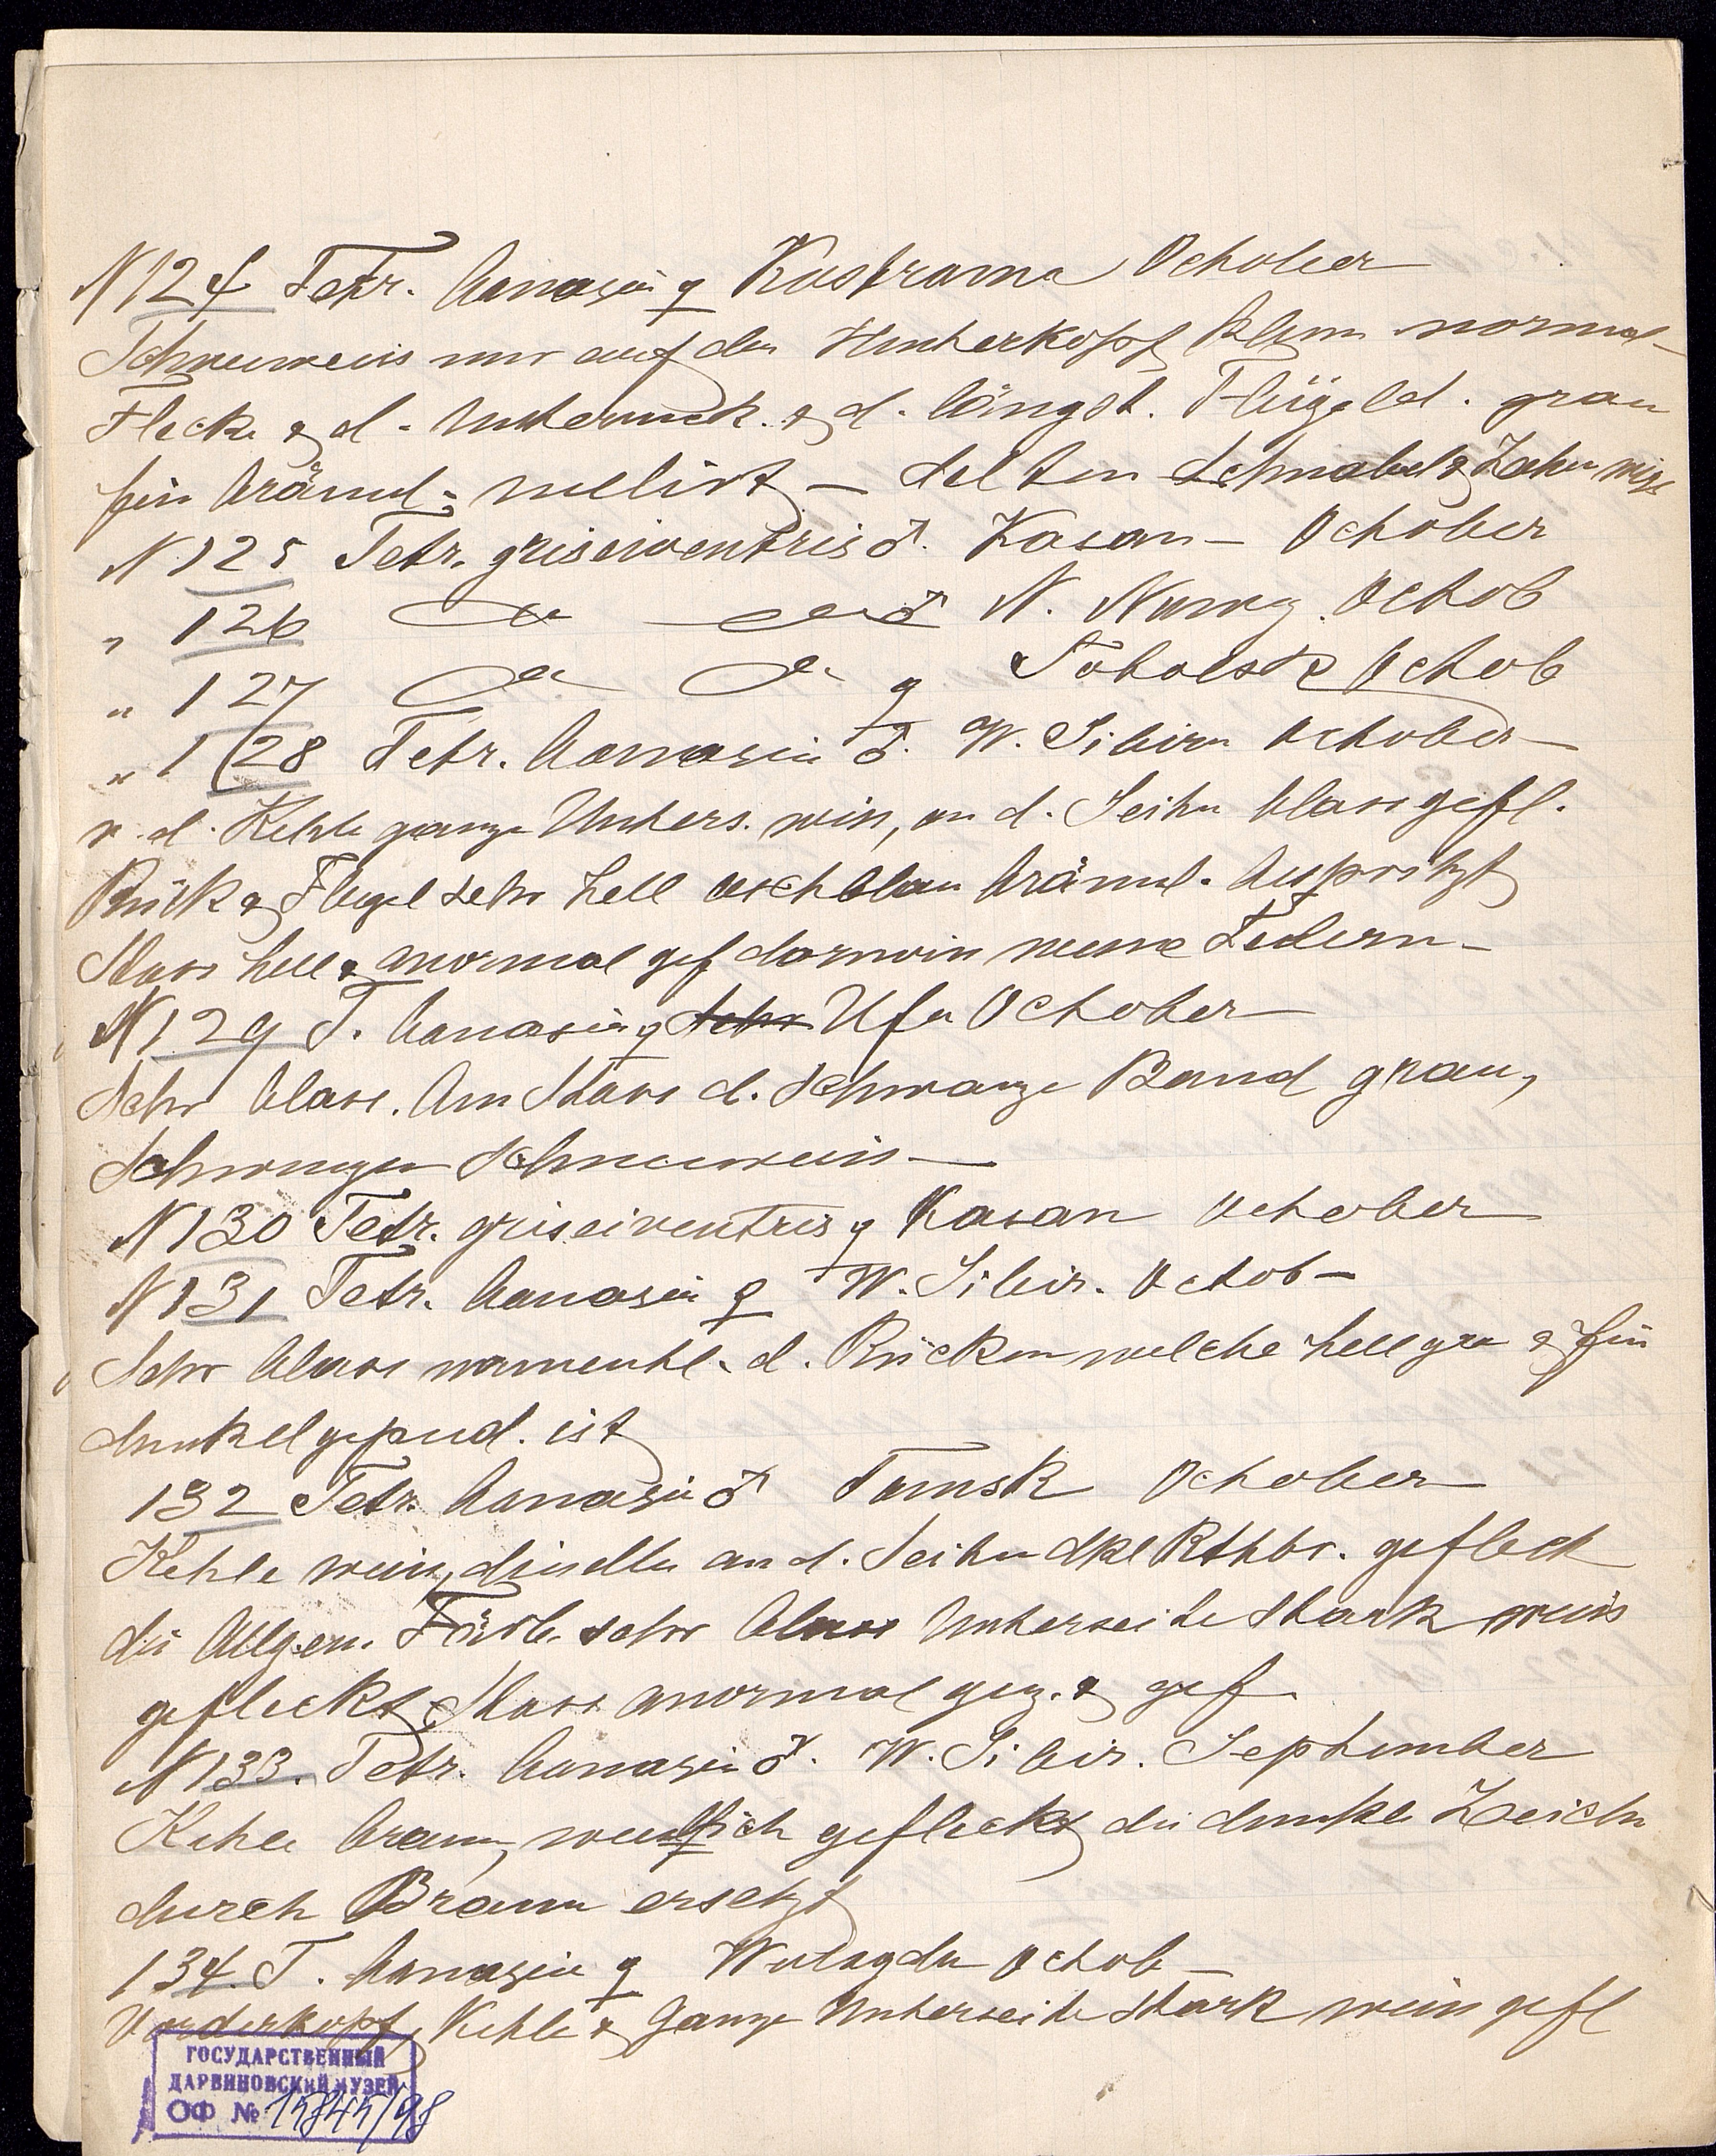 N 124 Tetr. bonasia ♀ Kostroma October
Schneeweis nur auf den Hinterkopf klein normal-
Flecke & d. Unterrück. & d. längst. Flügeld. grau
fein bräunl. melirt – selten Schnabel & Zehen weiss
N 125 Tetr. griseiventris ♂. Kasan – October
" 126 do do ♂ N. Octob
" 127 do do ♀ Tobolsk Octob
" 128 Tetr. bonasia ♂. W. Sibirn October –
v. d. Kehle ganze Unters. weiss, an d. Seiten blass gefl.
Rück & Flügel sehr hell aschblau bräunl.
Stoss hell & anormal gef darwin neune Federn –
N 129 T. bonasia ♀ sehr Ufa October
Sehr blass. Am Stoss d. schwarze Band grau,
Schwingen schneeweiss –
N 130 Tetr. griseiventris ♀ Kasan October
N 131 Tetr. bonasia ♀ W. Sibir. Octob –
Sehr blass namentl. d. Rücken welche hell grau & fein
dunkel gepud. ist
132 Tetr. bonasia ♂ Tomsk October
Kehle weiss, dieselbe an d. Seiten dkl Rthbr. gefleck
die Allgem. Färb. sehr blass Unterseite stark weiss
gefleckt Stoss anormal gez. & gef.
N 133. Tetr. bonasia ♂. W. Sibir. September
Kehle braun, weisslich gefleckt die dunkle Zeichn
durch Braun ersetzt
134. T. bonasia ♀ Wologda Octob –
Vorderkopf, Kehle & Ganze Unterseite stark weiss gefl
ГОСУДАРСТВЕННЫЙ
ДАРВИНОВСКИЙ МУЗЕЙ
ОФ № 15845/98